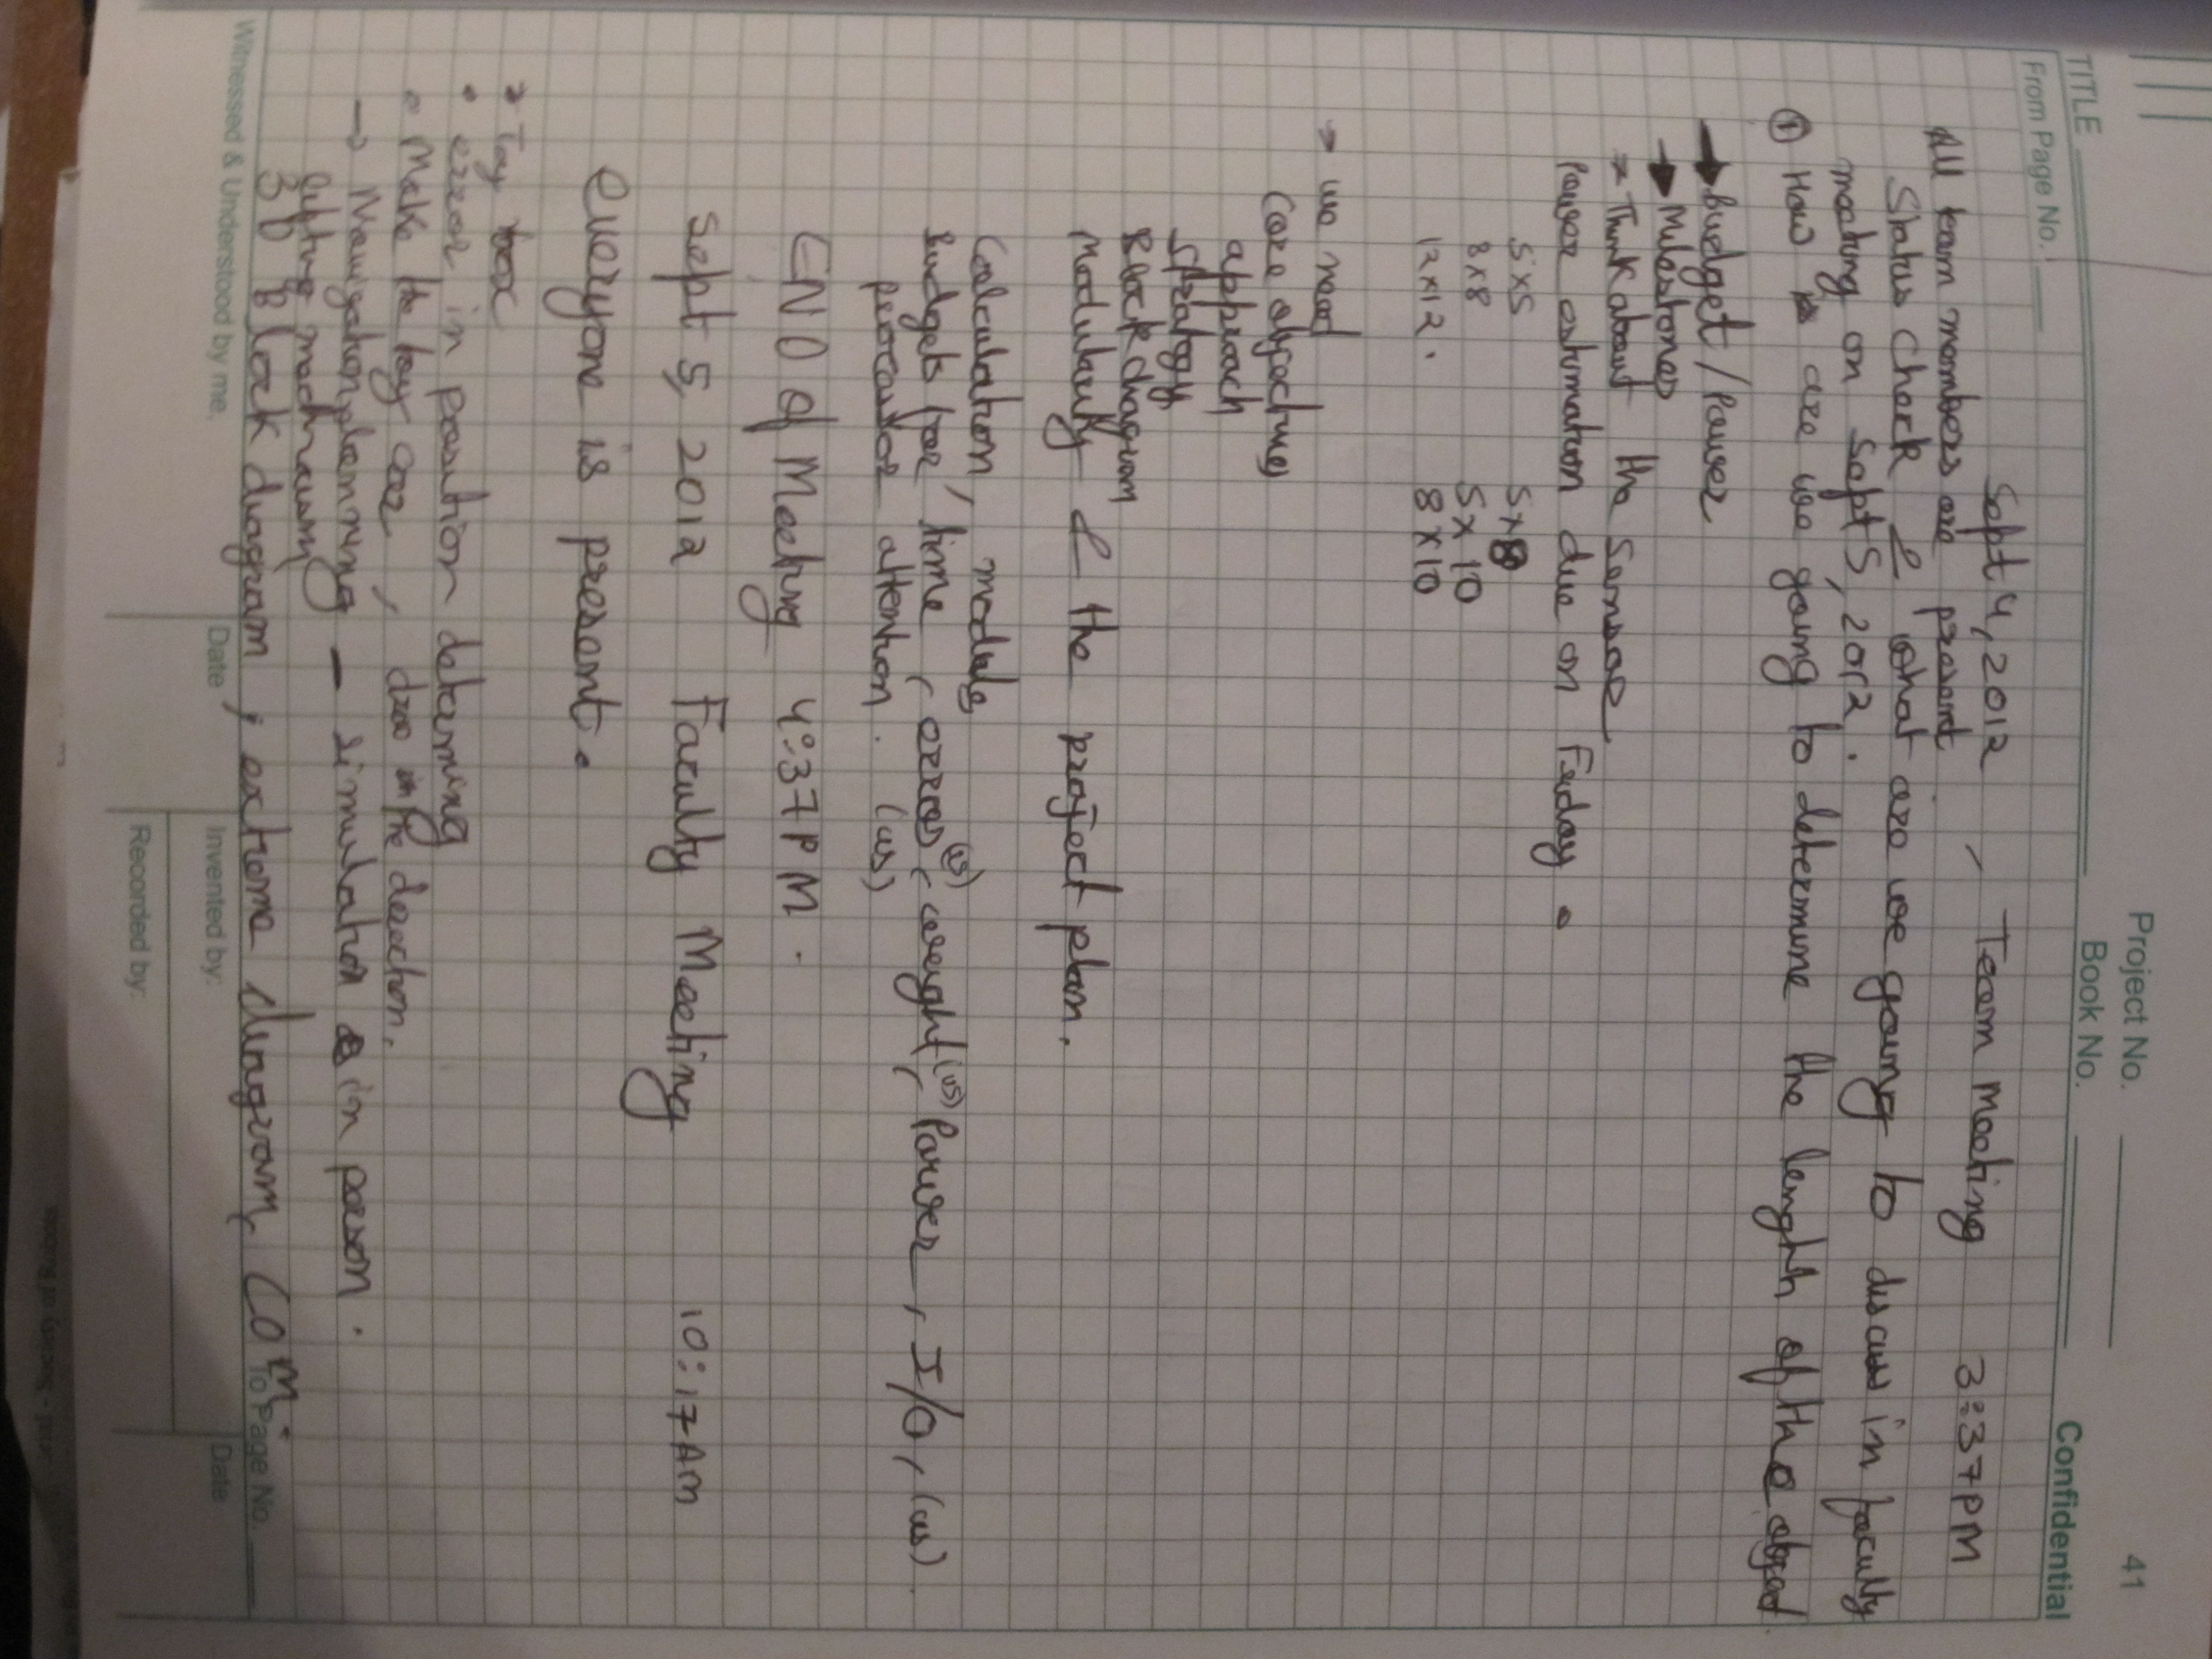 41
Project No.
TITLE
Book No.
Confidential
From Page No.
Sept 4, 2012 , Team Meeting 3:37PM
All team members are present
Status Check & what are we going to discuss in faculty
meeting on Sept 5, 2012.
① How are we going to determine the length of the object
Budget / Power
Milestones
Think about the Sensor
Power estimation due on Friday.
5x5 5x8
8x8 5x10
12x12. 8x10
→ we need
Core objectives
approach
strategy
Block diagram
Modularity & the project plan.
Calculation, models
Budgets for time, error, (us) weight, (us) Power, I/O, (us)
processor attention. (us)
END of Meeting 4:37PM.
Sept 5, 2012 Faculty Meeting 10:17AM
everyone is present.
Toy box
• error in position determing
• Make the toy car, the direction.
→ Navigation planning - simulation in person.
lifting mechanism
3D Block diagram, diagram, Com.
To Page No.
Witnessed & Understood by me,
Date
Invented by:
Date
Recorded by:
rial - Society of Robots